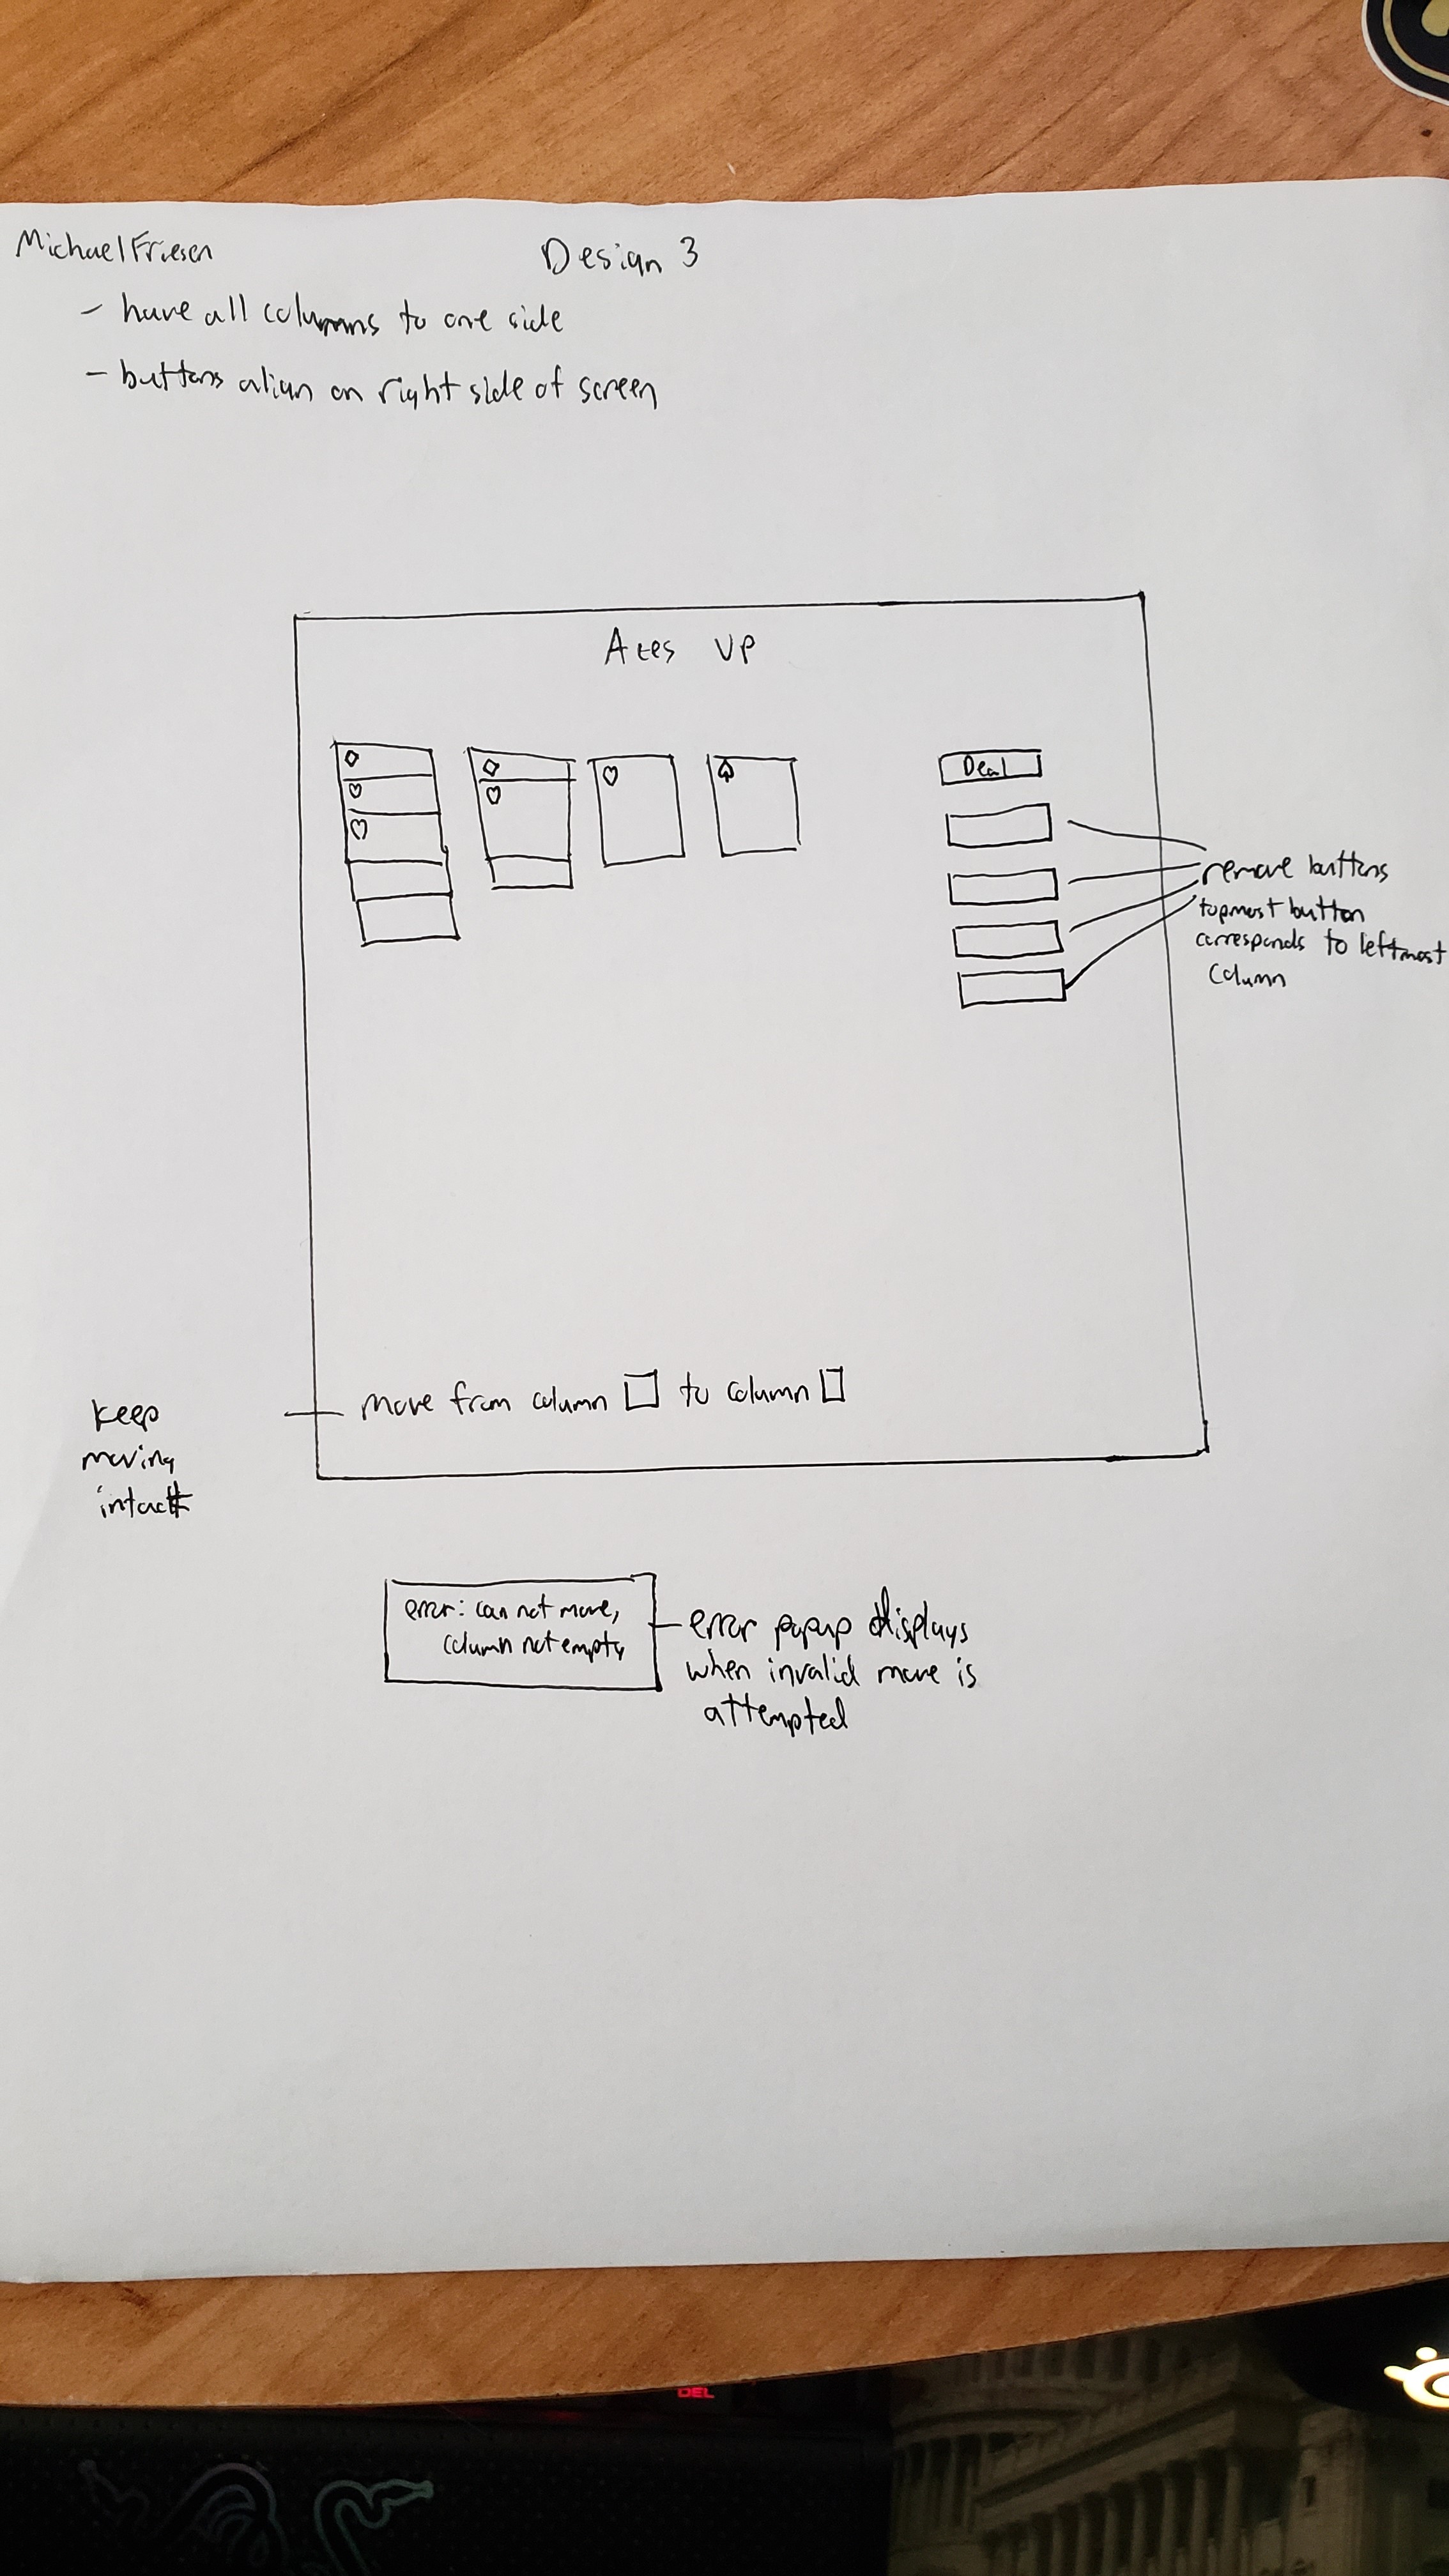 Michael Friesen
Design 3
- have all columns to one side
- buttons align on right side of screen
Aces UP
Deal
remove buttons
topmost button
corresponds to leftmost
column
move from column to column
keep
moving
intact
error: can not move,
column not empty
error popup displays
when invalid move is
attempted
DEL